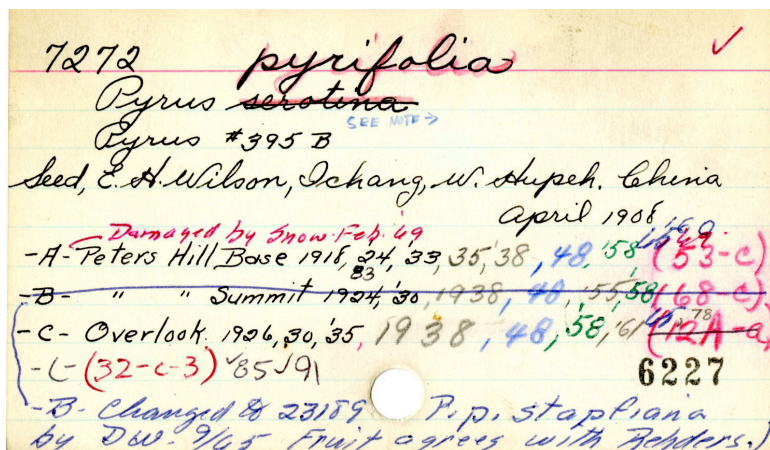 7272 pyrifolia ✓
Pyrus serotina
SEE NOTE →
Pyrus #395 B
Seed, E. H. Wilson, Ichang, W. Hupeh. China
April 1908
Damaged by Snow Feb. '49
-A- Peters Hill Base 1918, 24, '33, 35, '38, 48, '58 (53-C)
83
-B- " " Summit 1924, '30, 1938, 48, '55, 58, (68-C)
-C- Overlook. 1926, 30, '35, 1938, 48, '58, '61, 78 (12A-a)
-C- (32-c-3) '85 '91
6227
-B- Changed to 23189 P. p. stapfiana
by DW- 9/65 Fruit agrees with Rehders.)